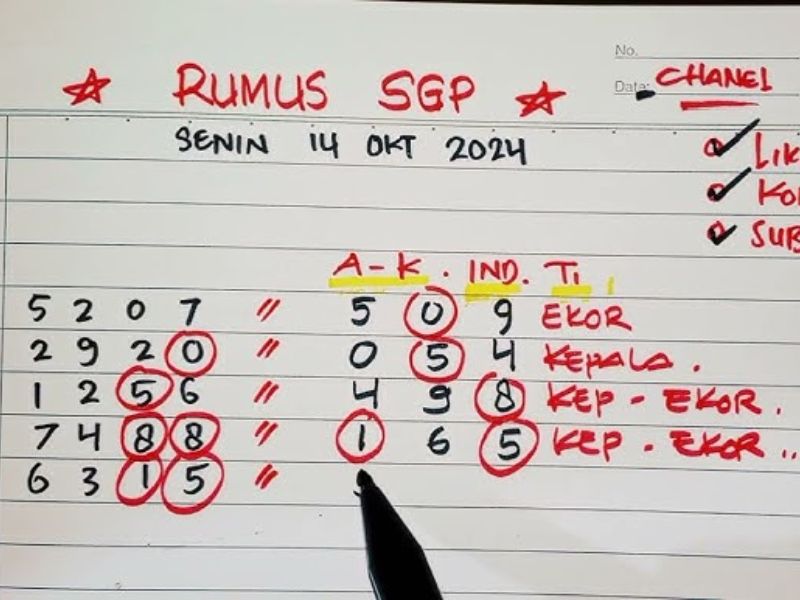 No.
Date: CHANEL
☆ RUMUS SGP ☆
SENIN 14 OKT 2024
LIK
KO
SUB
A-K. IND. TI
5 2 0 7 〃 5 0 9 EKOR
2 9 2 0 〃 0 5 4 KEPALA.
1 2 5 6 〃 4 9 8 KEP - EKOR.
7 4 8 8 〃 1 6 5 KEP - EKOR..
6 3 1 5 〃